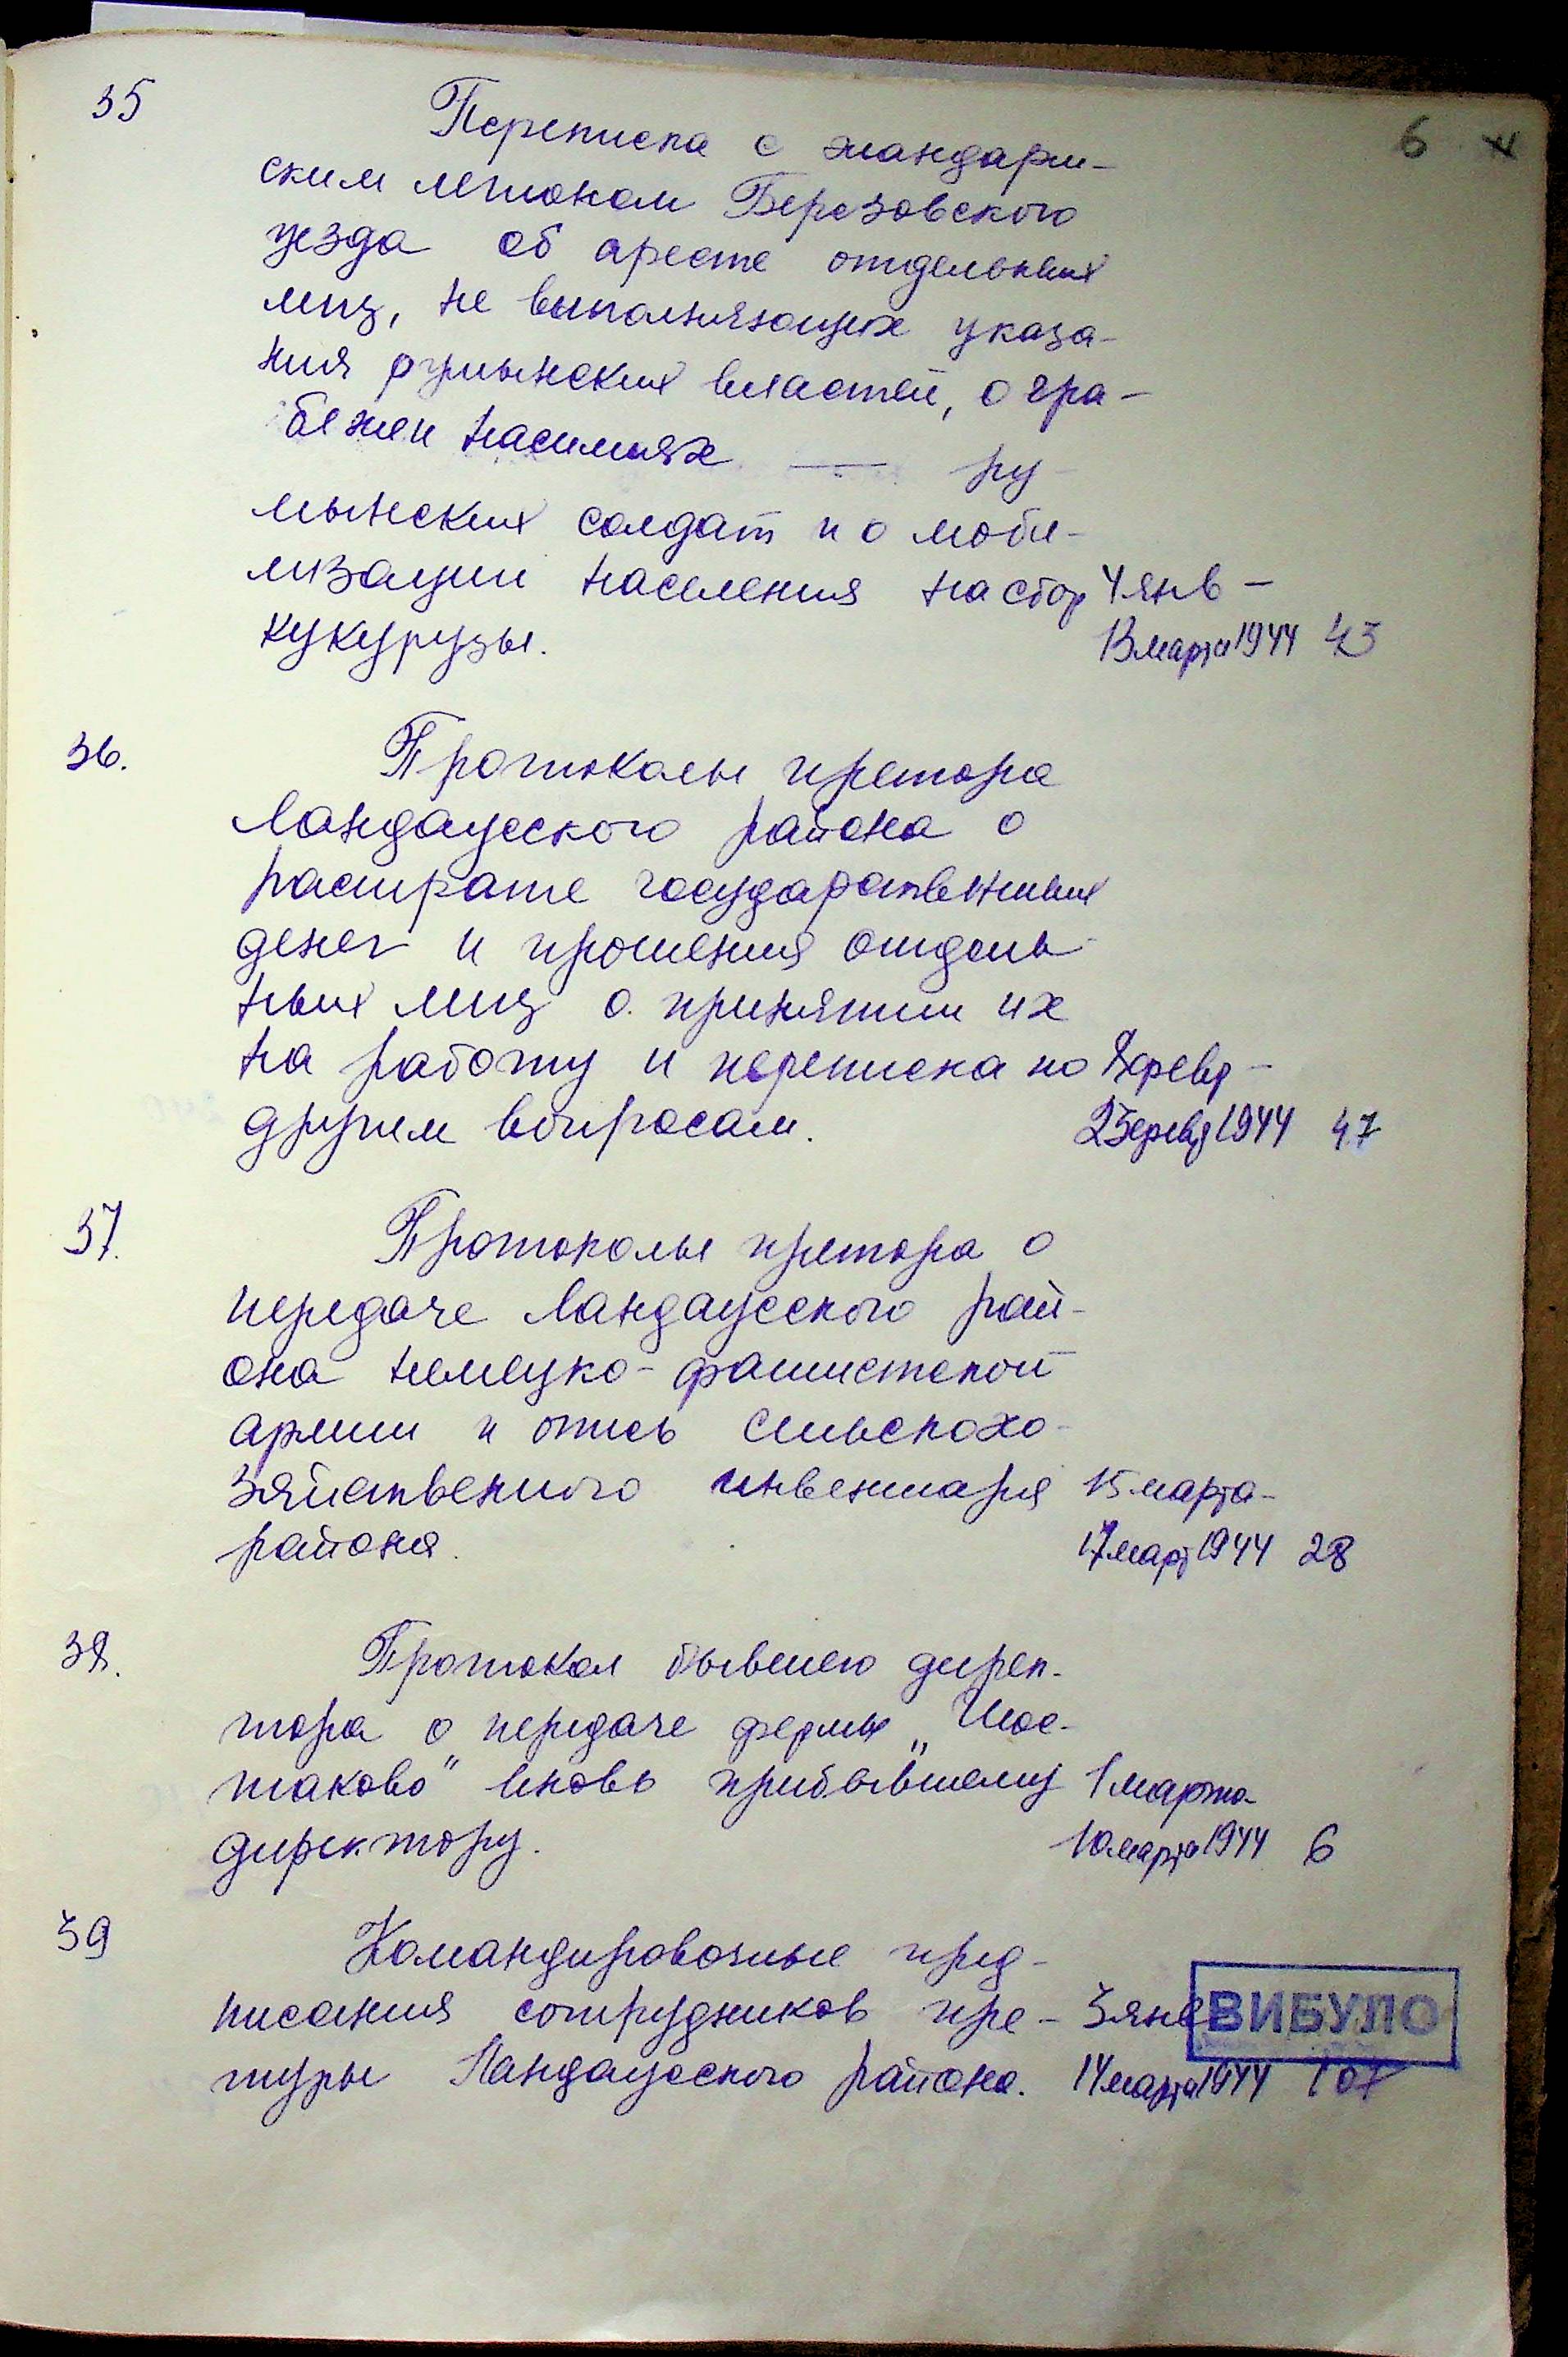 6
35 Переписка с жандарм-
ским легионом Березовского
уезда об аресте отдельных
лиц, не выполняющих указа-
ния румынских властей, о гра-
беже и насилиях — ру-
мынских солдат и о моби-
лизации населения на сбор 4 янв –
кукурузы. 13 марта 1944 43
36. Протоколы претора
Ландауского района о
растрате государственных
денег и прошения отдель-
ных лиц о принятии их
на работу и переписка по 8 февр –
другим вопросам. 25 февр 1944 47
37. Протоколы претора о
передаче Ландауского рай-
она немецко-фашистской
армии и опись сельскохо-
зяйственного инвентаря 15 марта –
района. 17 март 1944 28
38. Протокол бывшего дирек-
тора о передаче фермы „Шос-
таково" вновь прибывшему 1 марта –
директору. 10 марта 1944 6
39 Командировочные пред-
писания сотрудников пре- 3 янв
ВИБУЛО
туры Ландауского района. 14 марта 1944 107